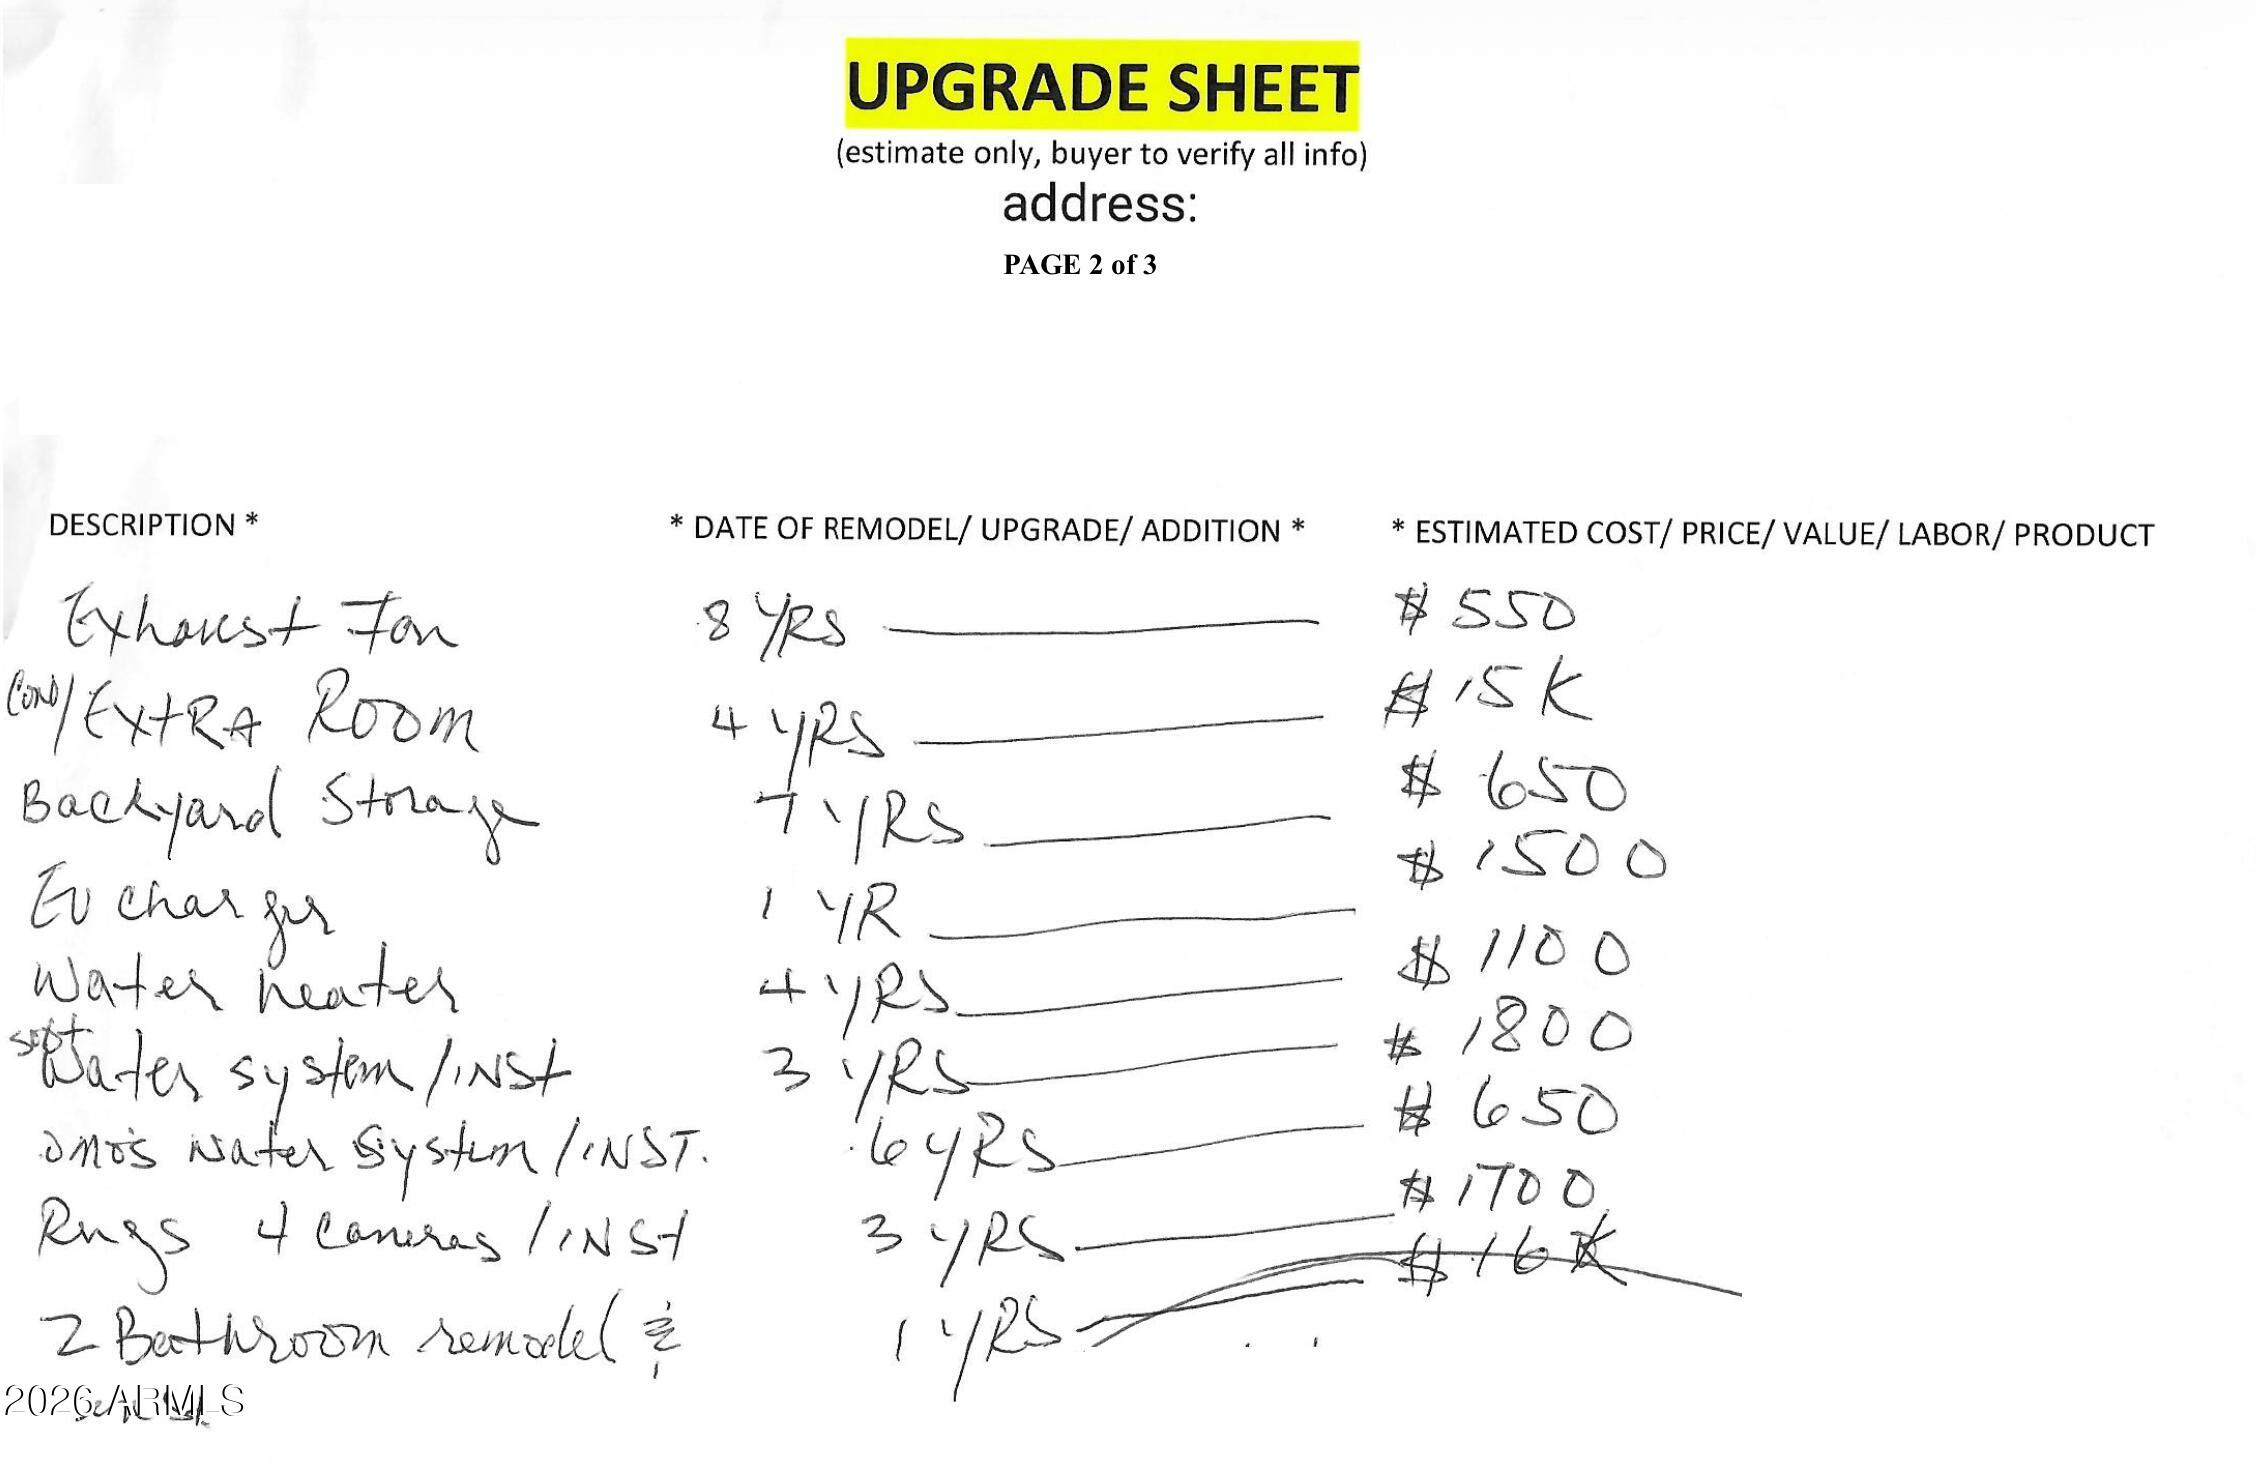 UPGRADE SHEET
(estimate only, buyer to verify all info)
address:
PAGE 2 of 3
DESCRIPTION * * DATE OF REMODEL/ UPGRADE/ ADDITION * * ESTIMATED COST/ PRICE/ VALUE/ LABOR/ PRODUCT
Exhaust Fan 8 YRS $ 550
/EXTRA ROOM 4 YRS $ 15K
Backyard Storage 7 YRS $ 650
EV charger 1 YR $ 1500
Water heater 4 YRS $ 1100
soft
Water system/INST 3 YRS $ 1800
water system/INST. 6 YRS $ 650
Rings 4 Cameras/INST 3 YRS $ 1700
2 Bathroom remodel & 1 YRS $ 16K
2026 ARMLS